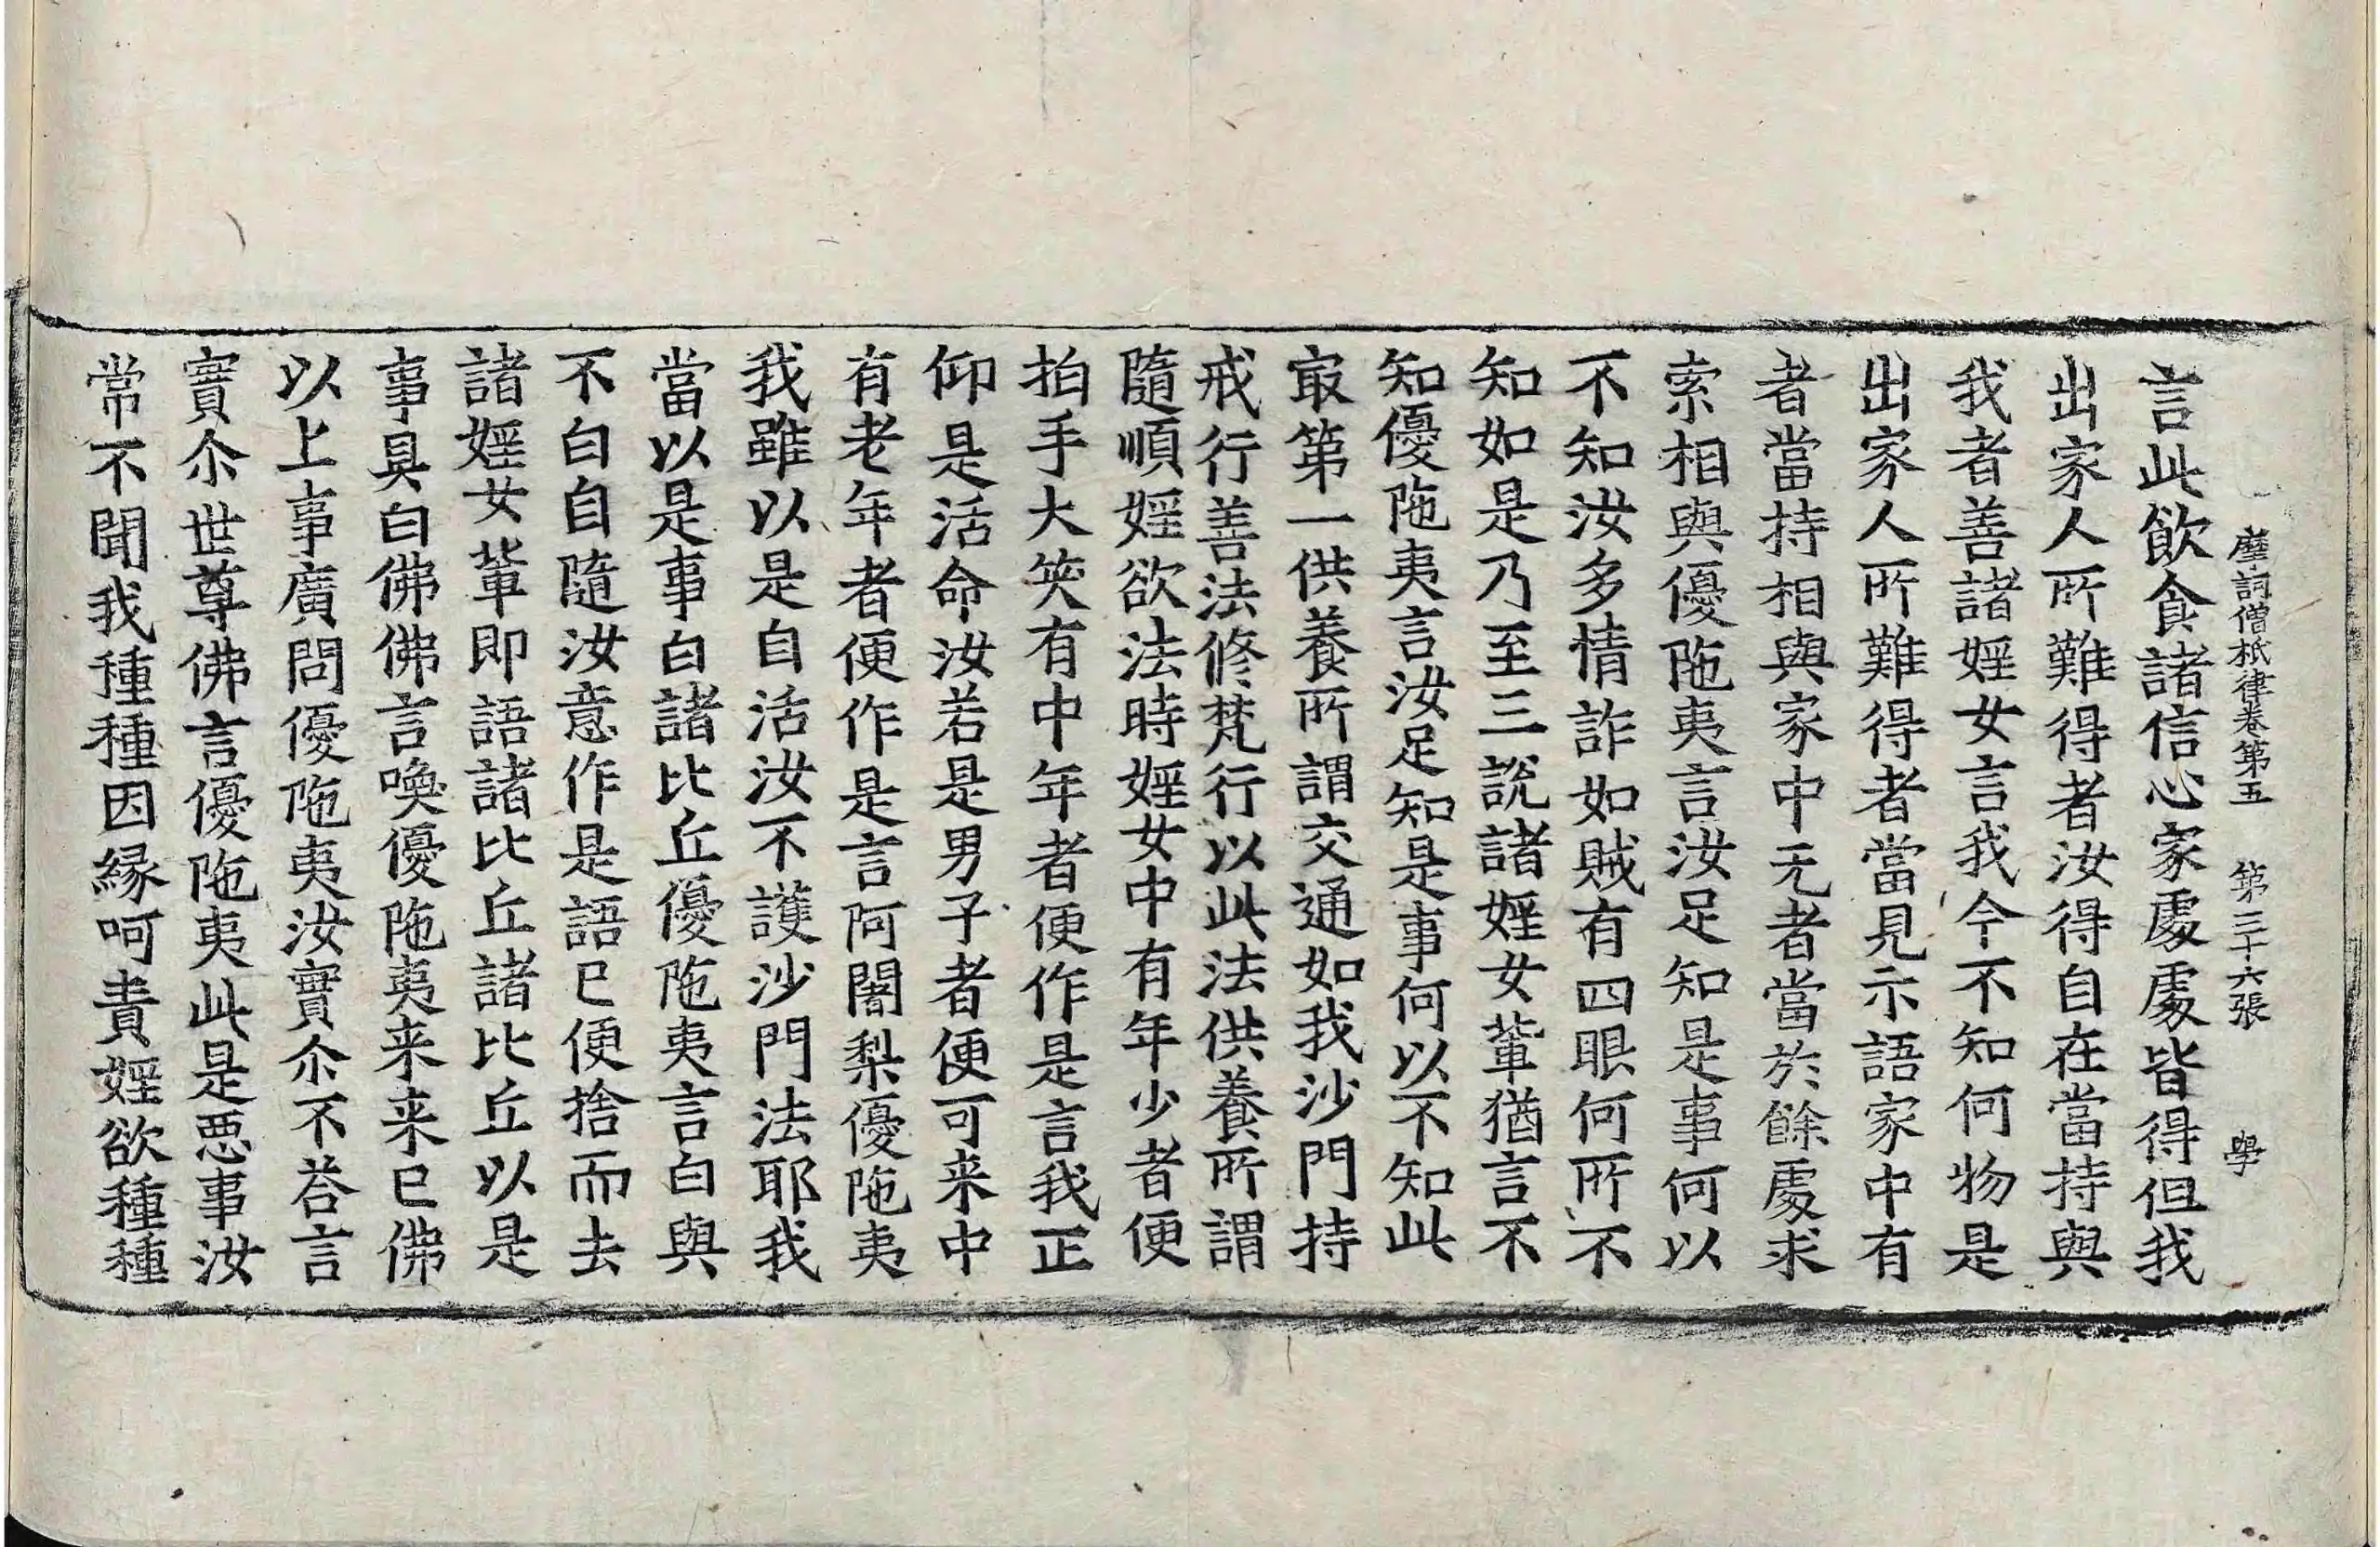 摩訶僧祇律卷第五 第三十六張 學
言此飲食諸信心家處處皆得但我
出家人所難得者汝得自在當持與
我者善諸婬女言我今不知何物是
出家人所難得者當見示語家中有
者當持相與家中无者當於餘處求
索相與優陁夷言汝足知是事何以
不知汝多情詐如賊有四眼何所不
知如是乃至三說諸婬女輩猶言不
知優陁夷言汝足知是事何以不知此
㝡第一供養所謂交通如我沙門持
戒行善法修梵行以此法供養所謂
隨順婬欲法時婬女中有年少者便
拍手大笑有中年者便作是言我正
仰是活命汝若是男子者便可来中
有老年者便作是言阿闍梨優陁夷
我雖以是自活汝不護沙門法耶我
當以是事白諸比丘優陁夷言白與
不白自隨汝意作是語已便捨而去
諸婬女輩即語諸比丘諸比丘以是
事具白佛佛言喚優陁夷来来已佛
以上事廣問優陁夷汝實尒不荅言
實尒世尊佛言優陁夷此是惡事汝
常不聞我種種因緣呵責婬欲種種